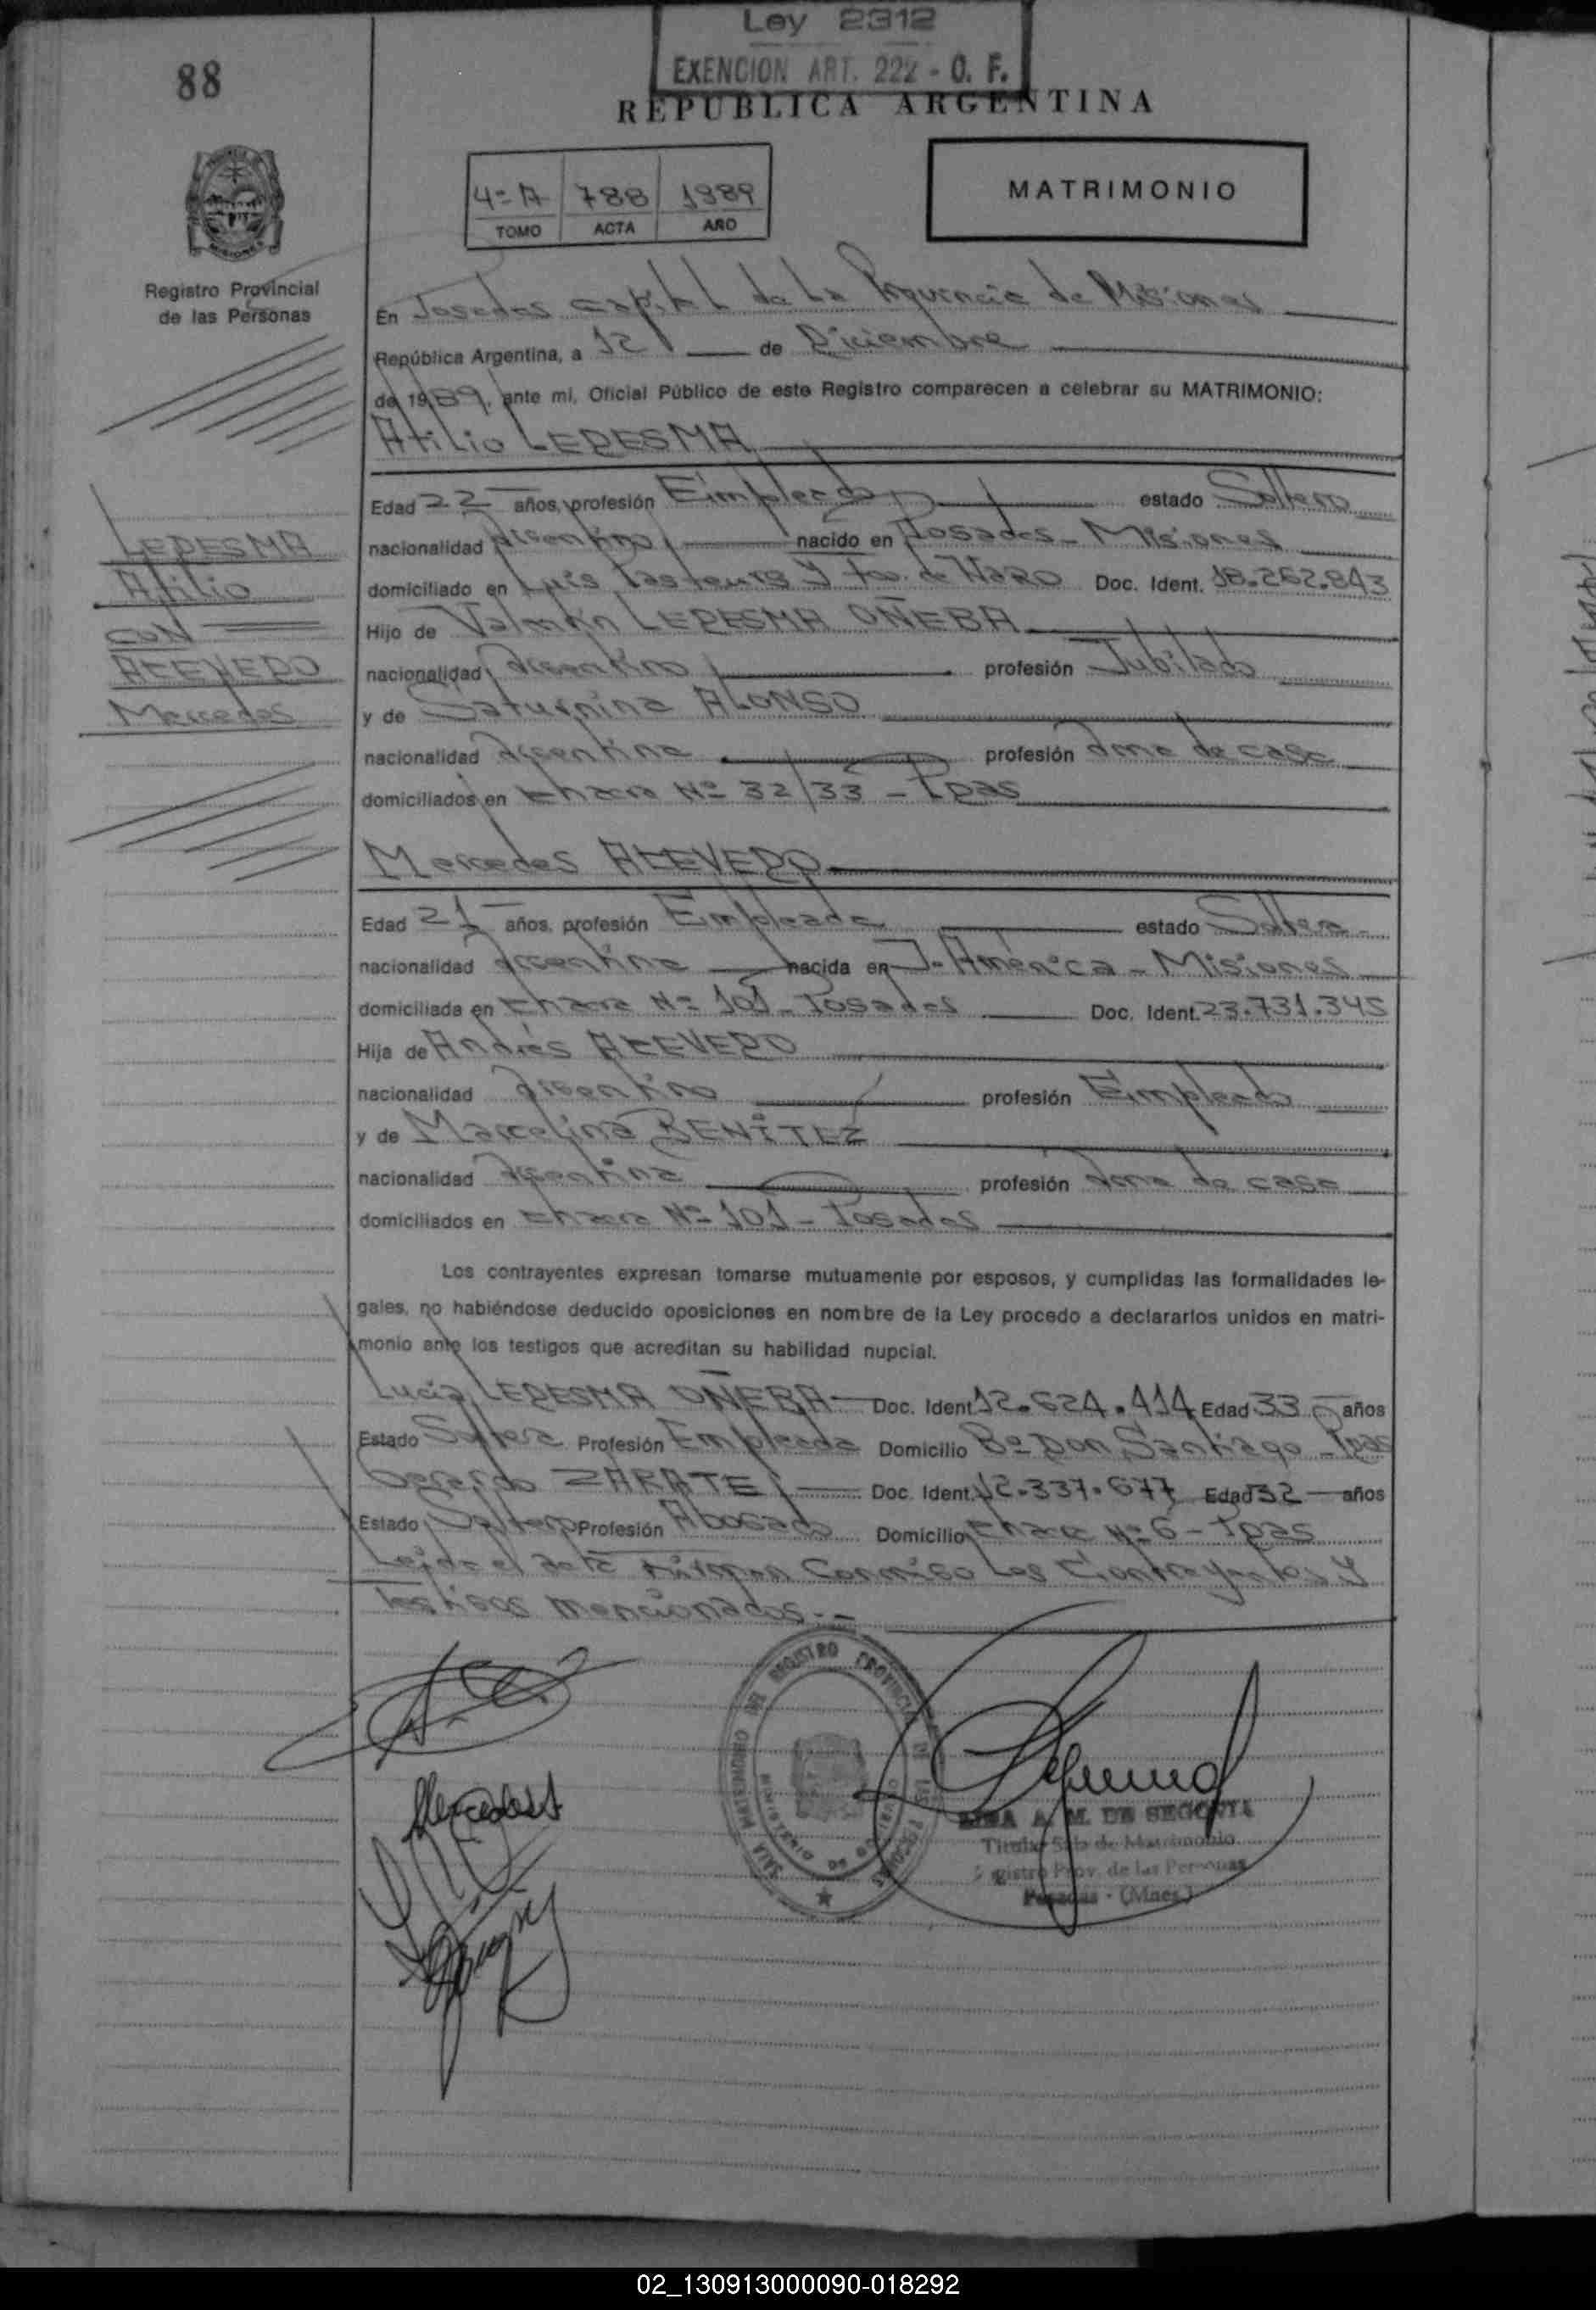 Ley 2312
EXENCION ART. 222 - O. F.
88
REPUBLICA ARGENTINA
4º A 788 1989
TOMO ACTA AÑO
MATRIMONIO
PROVINCIA DE MISIONES
Registro Provincial
de las Personas
En Posadas capital de la Provincia de Misiones
República Argentina, a 12 de Diciembre
de 1989, ante mí, Oficial Público de este Registro comparecen a celebrar su MATRIMONIO:
Atilio LEDESMA
Edad 22 años, profesión Empleado estado Soltero
nacionalidad Argentino nacido en Posadas - Misiones
domiciliado en Luis Pasteur y de HARO Doc. Ident. 18.262.843
Hijo de LEDESMA OÑEBA
nacionalidad Argentino profesión Jubilado
y de Saturnina ALONSO
nacionalidad Argentina profesión Ama de casa
domiciliados en Chacra Nº 32/33 - Pdas
LEDESMA
Atilio
CON
ACEVEDO
Mercedes
Mercedes ACEVEDO
Edad 21 años, profesión Empleada estado Soltera
nacionalidad Argentina nacida en J. América - Misiones
domiciliada en Chacra Nº 101 - Posadas Doc. Ident. 23.731.345
Hija de Andrés ACEVEDO
nacionalidad Argentino profesión Empleado
y de Marcelina BENITEZ
nacionalidad Argentina profesión Ama de casa
domiciliados en Chacra Nº 101 - Posadas
Los contrayentes expresan tomarse mutuamente por esposos, y cumplidas las formalidades le-
gales, no habiéndose deducido oposiciones en nombre de la Ley procedo a declararlos unidos en matri-
monio ante los testigos que acreditan su habilidad nupcial.
Lucia LEDESMA OÑEBA Doc. Ident 12.624.414 Edad 33 años
Estado Soltera Profesión Empleada Domicilio Bº Don Santiago - Pdas
Gerardo ZARATE Doc. Ident. 12.337.677 Edad 32 años
Estado Soltero Profesión Abogado Domicilio Chacra Nº 6 - Pdas
Leída el acta firman conmigo los Contrayentes y
Testigos mencionados.-
Mercedes A
SALA MATRIMONIO DEL REGISTRO PROVINCIAL DE LAS PERSONAS
A. M. DE SEGOVIA
Titular Sala de Matrimonio
Registro Prov. de las Personas
Posadas - (Mnes.)
02_130913000090-018292